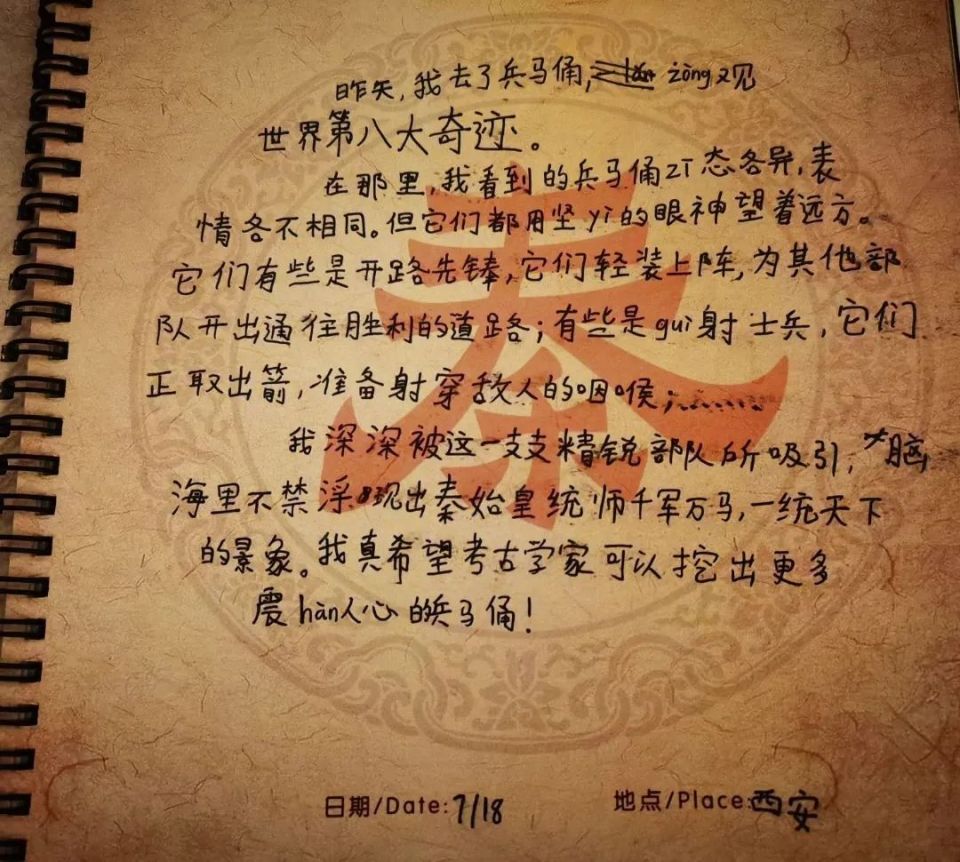 昨天,我去了兵马俑, zòng观
世界第八大奇迹。
在那里,我看到的兵马俑zī态各异,表
情各不相同。但它们都用坚yì的眼神望着远方。
它们有些是开路先锋,它们轻装上阵,为其他部
队开出通往胜利的道路;有些是guì射士兵,它们
正取出箭,准备射穿敌人的咽喉;…………
我深深被这一支支精锐部队所吸引,大脑
海里不禁浮现出秦始皇统师千军万马,一统天下
的景象。我真希望考古学家可以挖出更多
震hàn人心的兵马俑!
秦
日期/Date:7/18
地点/Place:西安